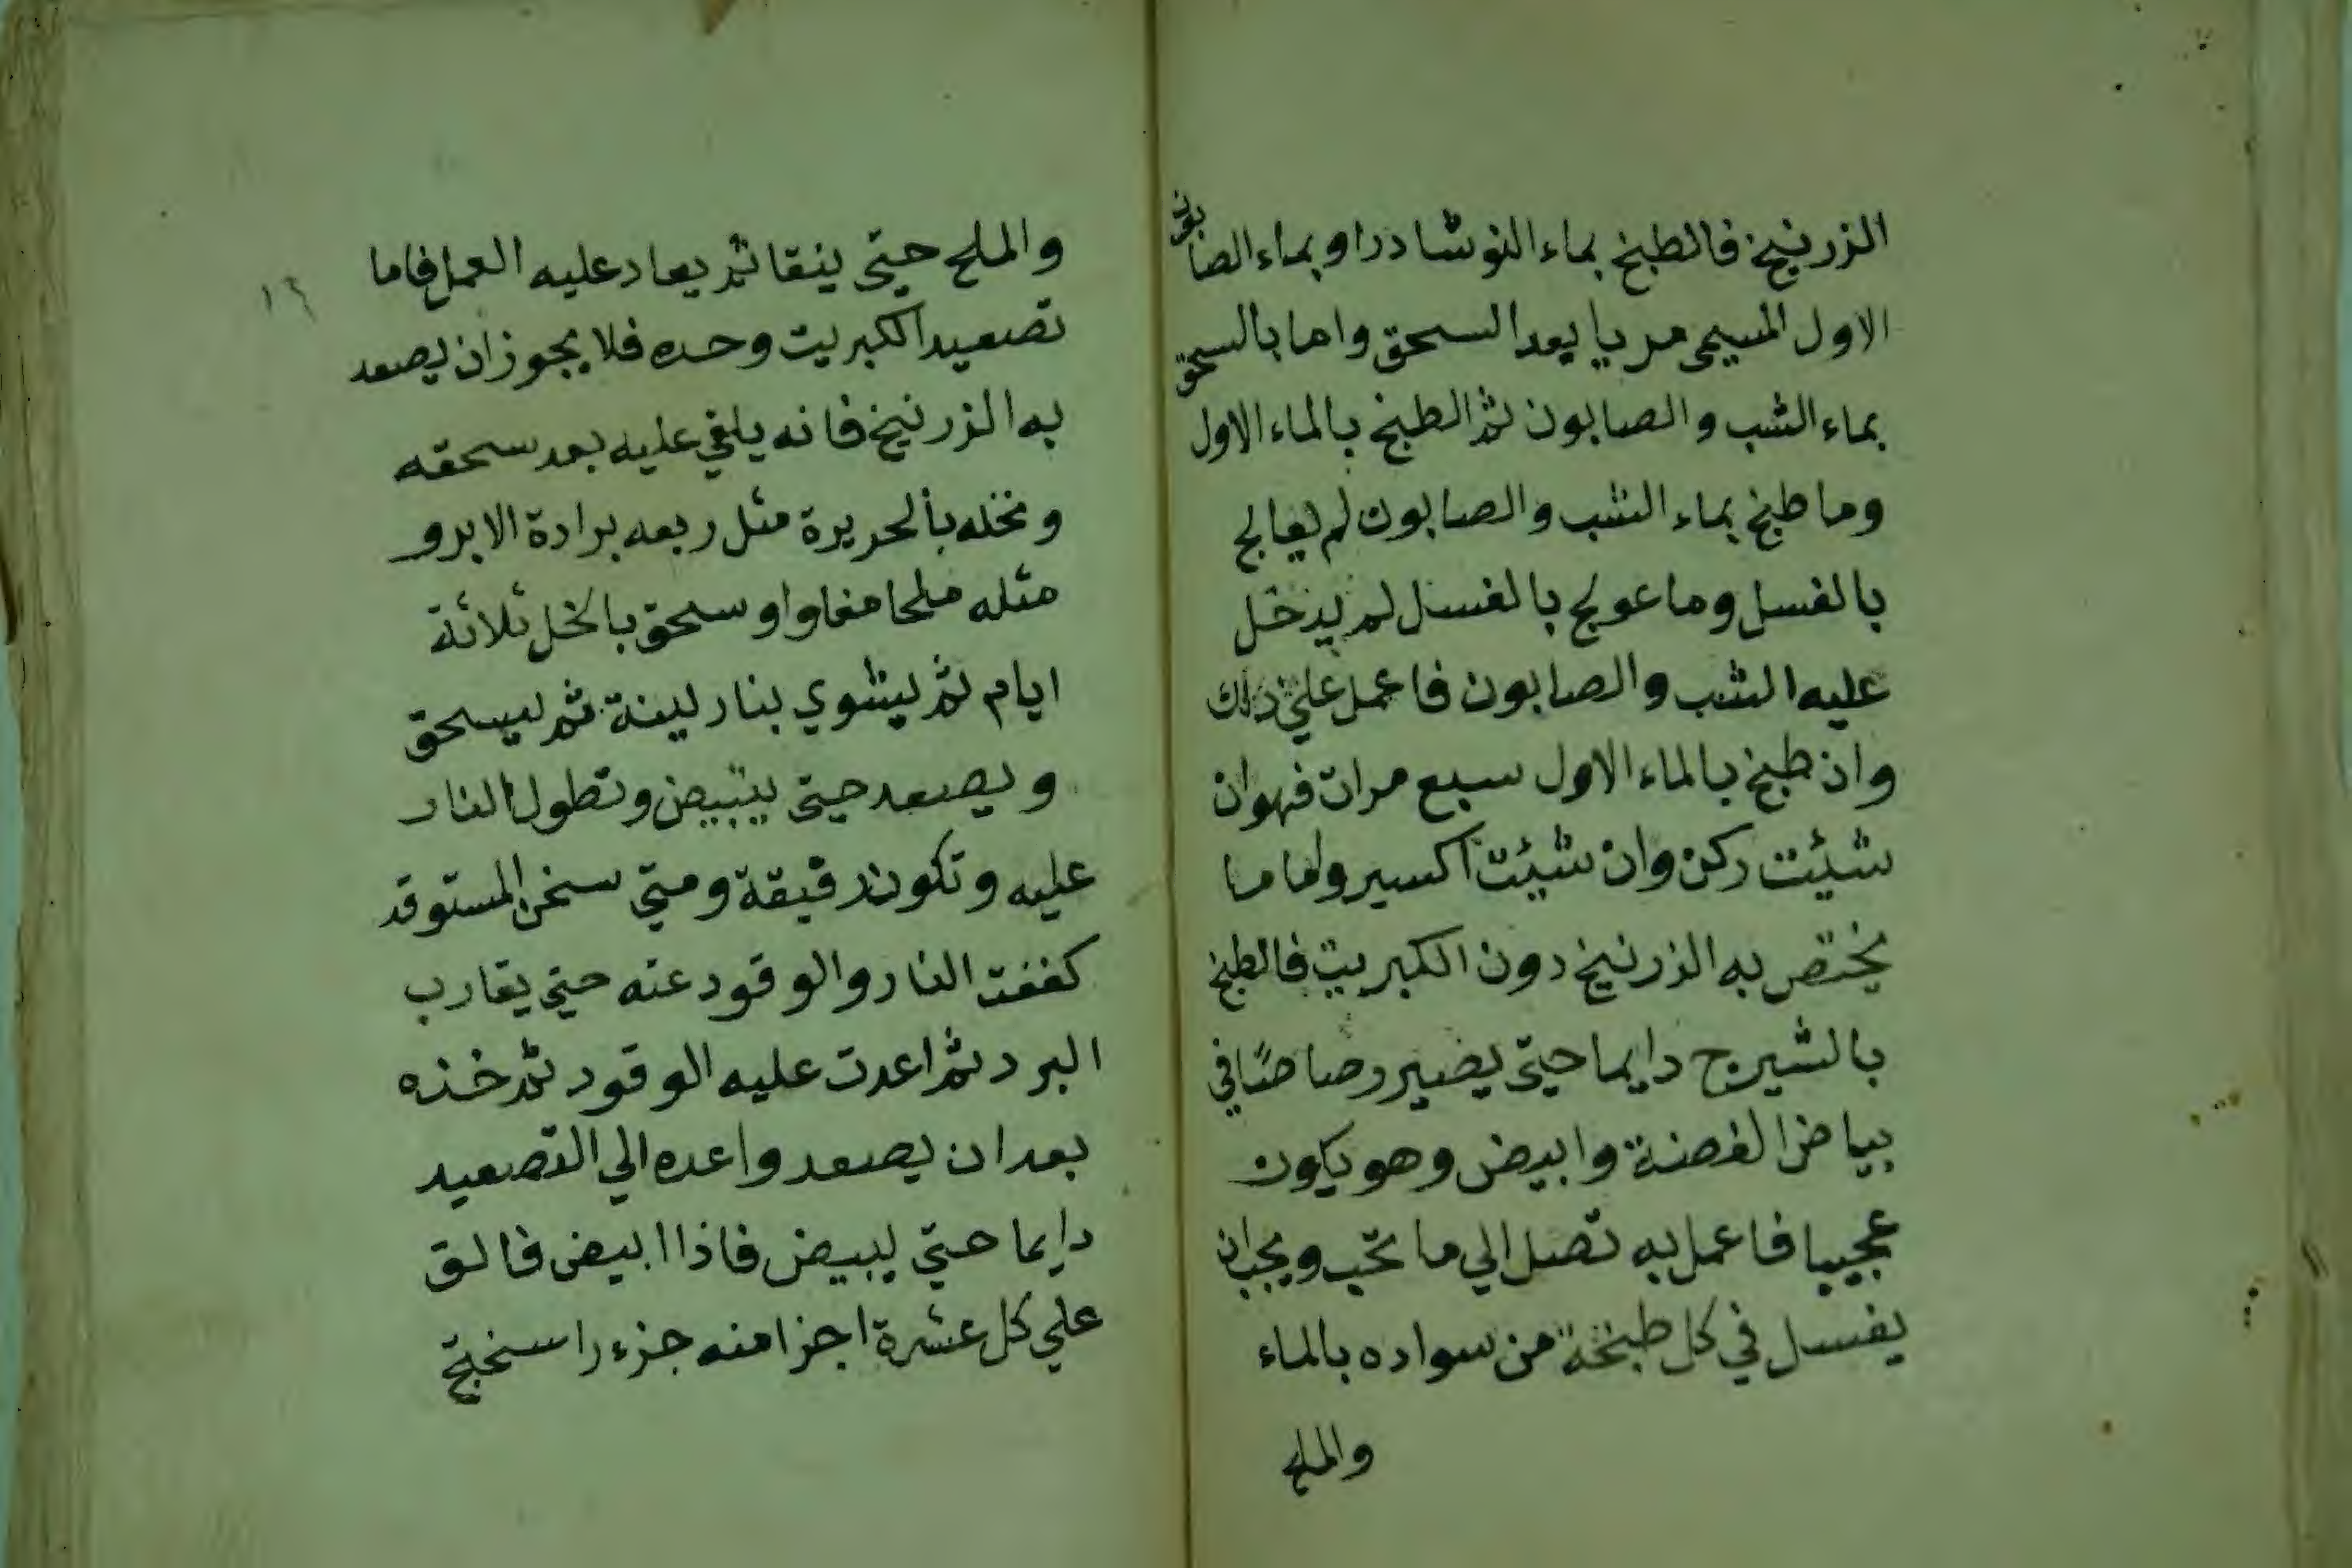 الزرنيخ فالطبخ بماء النوشادر او بماء الصابون
الاول المسمى مريا بعد السحق واما بالسحق
بماء الشب والصابون ثم الطبخ بالماء الاول
وما طبخ بماء الشب والصابون لم يعالج
بالغسل وما عولج بالغسل لم يدخل
عليه الشب والصابون فاعمل علي ذلك
وان طبخ بالماء الاول سبع مرات فهو ان
شئت ركن وان شئت اكسير واما ما
يختص به الزرنيخ دون الكبريت فالطبخ
بالشيرج دايما حتى يصير رصاصا في
بياض الفضة وابيض وهو يكون
عجيبا فاعمل به تصل الي ما تحب ويجب ان
يغسل في كل طبخة من سواده بالماء
والملح
١٦
والملح حتى ينقا ثم يعاد عليه العمل فاما
تصعيد الكبريت وحده فلا يجوز ان يصعد
به الزرنيخ فانه يلقي عليه بعد سحقه
ونخله بالحريرة مثل ربعه برادة الابر و
مثله ملحا مغاوا وسحق بالخل ثلاثة
ايام ثم يشوي بنار لينة ثم يسحق
ويصعد حتى يبيض وتطول النار
عليه وتكون رقيقة ومتى سخن المستوقد
كففت النار والوقود عنه حتى يقارب
البرد ثم اعدت عليه الوقود ثم خذه
بعد ان يصعد واعده الي التصعيد
دايما حتى يبيض فاذا ابيض فالق
علي كل عشرة اجزا منه جزء راسختج